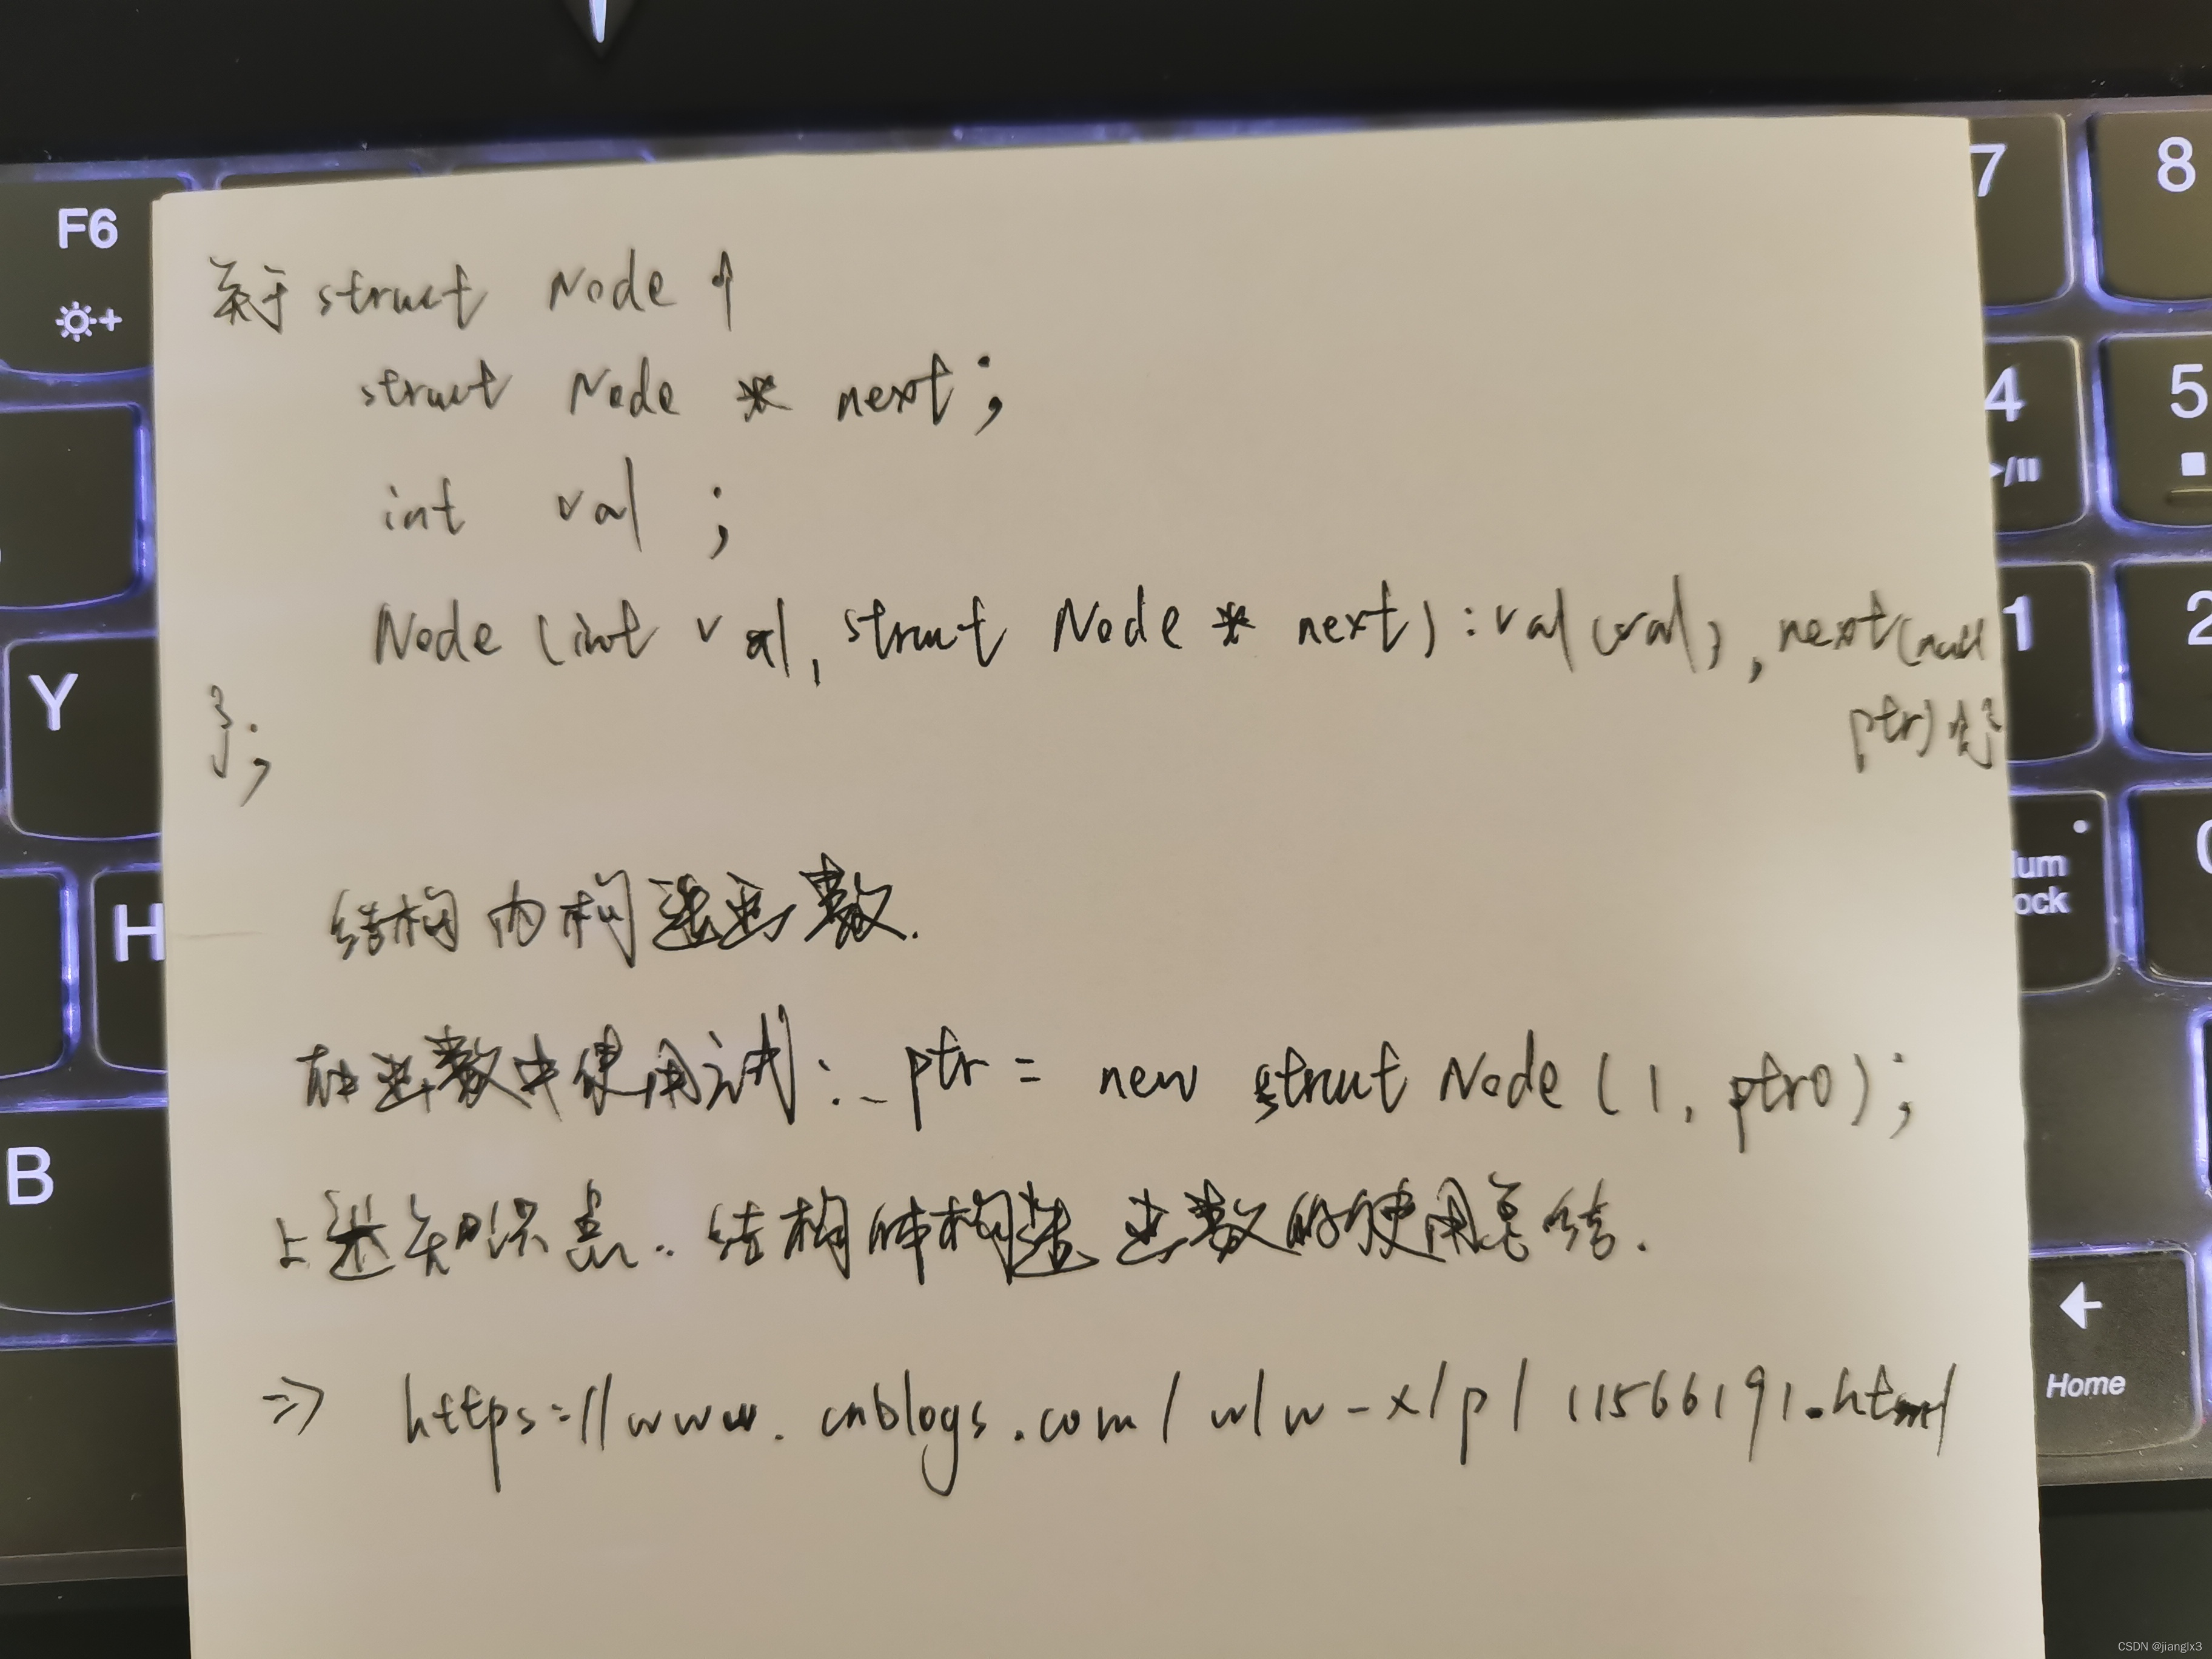 F6
7
8
4
5
1
2
Y
H
B
lum
ock
0
Home
关于 struct Node {
struct Node * next;
int val ;
Node (int val, struct Node * next) : val(val), next(null
ptr) {}
};
结构内构造函数.
在函数中使用时: ptr = new struct Node (1, ptr0);
上述知识点: 结构体构造函数的使用总结.
=> https://www.cnblogs.com/wlw-x/p/11566191.html
CSDN @jianglx3